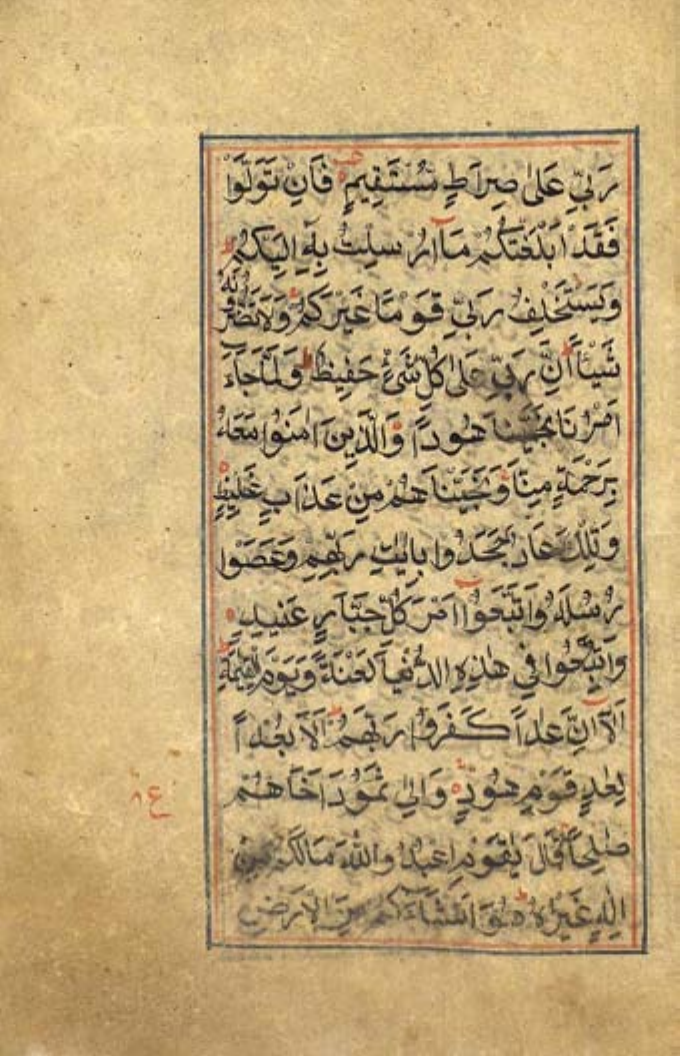 رَبِّي عَلىٰ صِرَاطٍ مُسْتَقِيمٍ فَاِنْ تَوَلَّوْا
فَقَدْ اَبْلَغْتُكُمْ مَآ اُرْسِلْتُ بِهٖ اِلَيْكُمْ
وَيَسْتَخْلِفُ رَبِّي قَوْمًا غَيْرَكُمْ وَلَا تَضُرُّونَهُ
شَيْـًٔا اِنَّ رَبِّي عَلىٰ كُلِّ شَيْءٍ حَفِيظٌ وَلَمَّا جَآءَ
اَمْرُنَا نَجَّيْنَا هُودًا وَالَّذِينَ اٰمَنُوا مَعَهُ
بِرَحْمَةٍ مِنَّا وَنَجَّيْنَاهُمْ مِنْ عَذَابٍ غَلِيظٍ
وَتِلْكَ عَادٌ جَحَدُوا بِاٰيٰتِ رَبِّهِمْ وَعَصَوْا
رُسُلَهُ وَاتَّبَعُوٓا اَمْرَ كُلِّ جَبَّارٍ عَنِيدٍ
وَاُتْبِعُوا فِي هٰذِهِ الدُّنْيَا لَعْنَةً وَيَوْمَ الْقِيٰمَةِ
اَلَآ اِنَّ عَادًا كَفَرُوا رَبَّهُمْ اَلَا بُعْدًا
لِعَادٍ قَوْمِ هُودٍ وَاِلىٰ ثَمُودَ اَخَاهُمْ
صٰلِحًا قَالَ يٰقَوْمِ اعْبُدُوا اللّٰهَ مَا لَكُمْ مِنْ
اِلٰهٍ غَيْرُهُ هُوَ اَنْشَاَكُمْ مِنَ الْاَرْضِ
ع